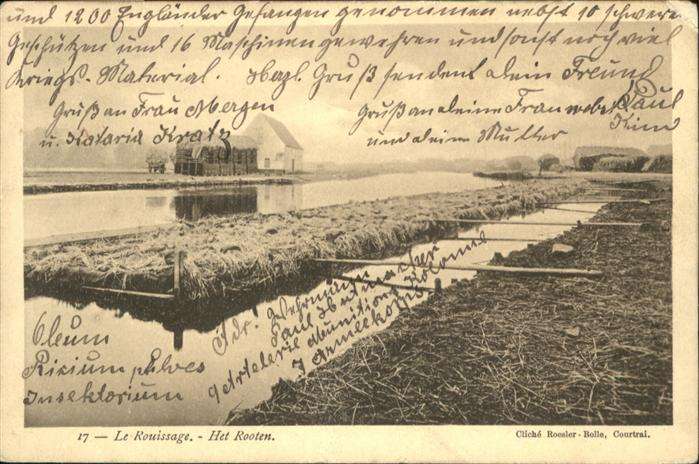 und 1200 Engländer Gefangen genommen nebst 10 schwere
Geschützen und 16 Maschinengewehren und sonst noch viel
Kriegs-Material. Herzl. Gruß sendent dein Freund
Paul
Gruß an Frau Mergen
u. Kataria Kratz
Gruß an deine Frau nebst Kind
und deine Mutter
Adr. Wehrmann
Paul
Artelerie Munitions Kolonne
Armeekorps
Oleum
Rizium pulves
Insektorium
17 — Le Rouissage. - Het Rooten.
Cliché Roesler-Bolle, Courtrai.